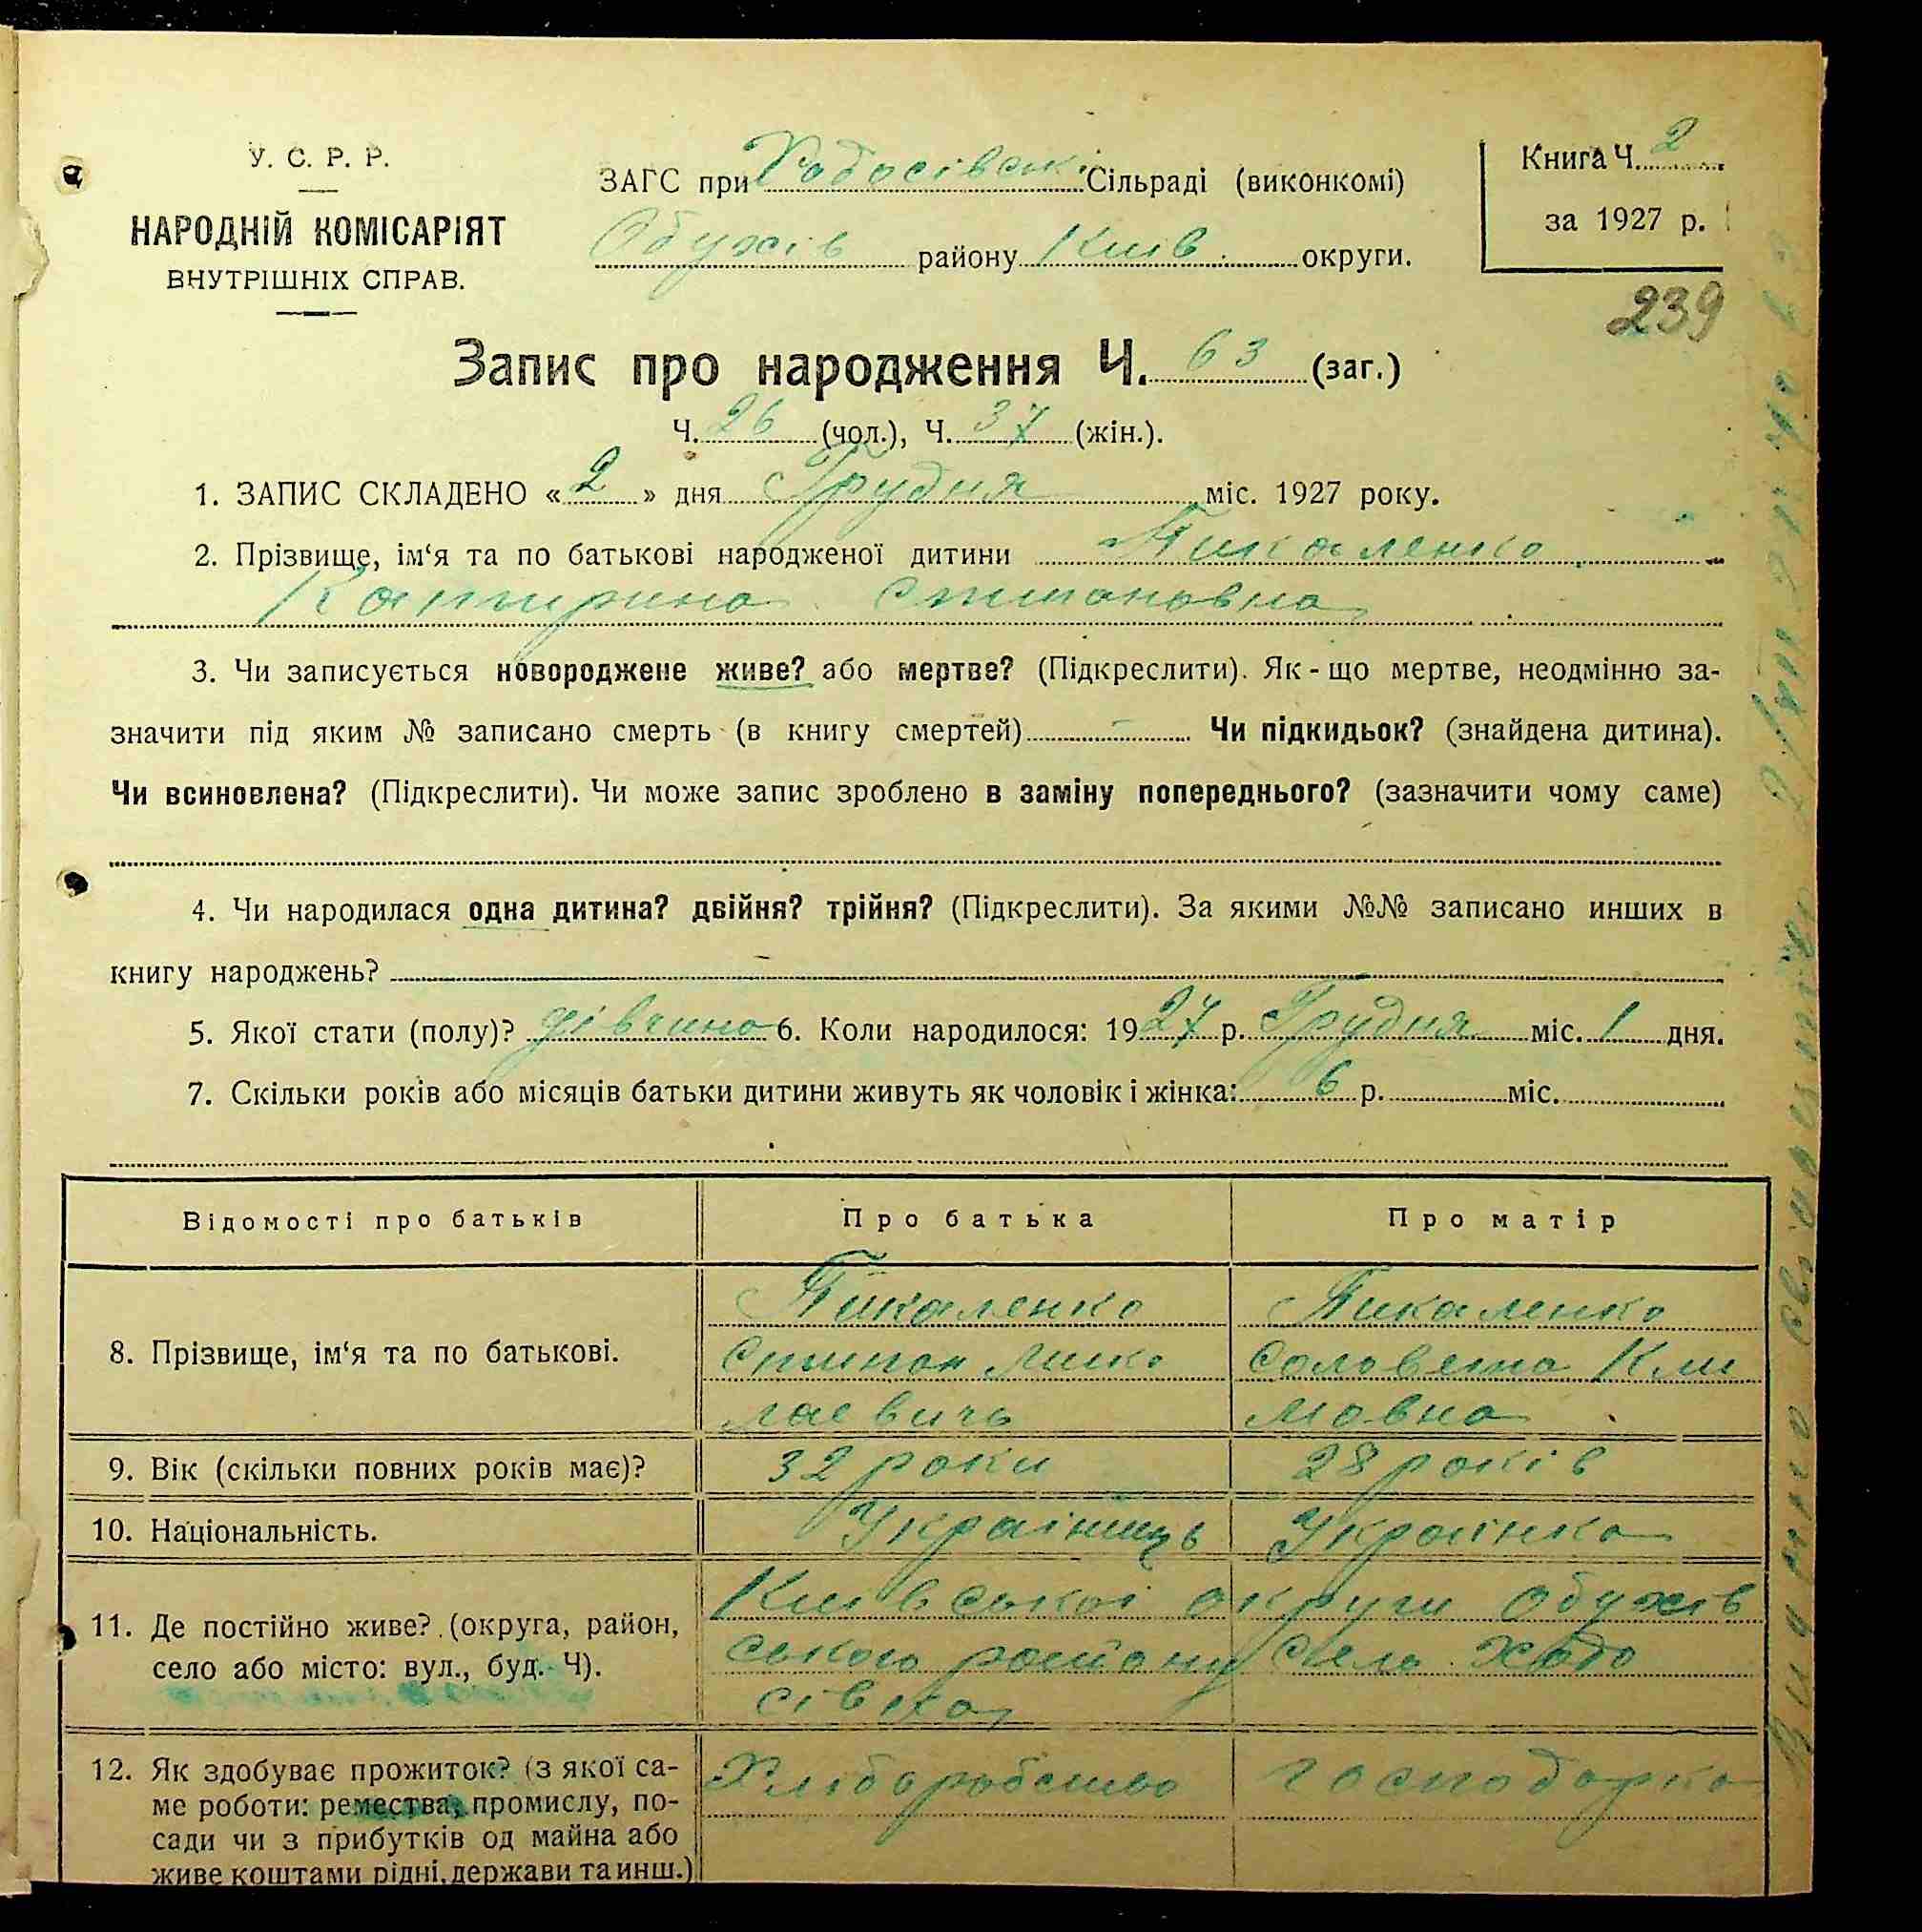 У. С. Р. Р.
НАРОДНІЙ КОМІСАРІЯТ
ВНУТРІШНІХ СПРАВ.
ЗАГС при Ходосівській Сільраді (виконкомі)
Обухів району Київ. округи.
Книга Ч. 2
за 1927 р.
239
Запис про народження Ч. 63 (заг.)
Ч. 26 (чол.), Ч. 37 (жін.).
1. ЗАПИС СКЛАДЕНО «2» дня Грудня міс. 1927 року.
2. Прізвище, ім‘я та по батькові народженої дитини Пикаленко
Катирина Степановна
3. Чи записується новороджене живе? або мертве? (Підкреслити). Як-що мертве, неодмінно за-
значити під яким № записано смерть (в книгу смертей) – Чи підкидьок? (знайдена дитина).
Чи всиновлена? (Підкреслити). Чи може запис зроблено в заміну попереднього? (зазначити чому саме)
4. Чи народилася одна дитина? двійня? трійня? (Підкреслити). За якими №№ записано инших в
книгу народжень? –
5. Якої стати (полу)? дівчина 6. Коли народилося: 1927 р. Грудня міс. 1 дня.
7. Скільки років або місяців батьки дитини живуть як чоловік і жінка: 6 р. міс.
Відомості про батьків Про батька Про матір
8. Прізвище, ім‘я та по батькові.
Пикаленко
Степан Мико
лаевичь
Пикаленко
Соловея Кли
мовна
9. Вік (скільки повних років має)? 32 роки 28 років
10. Національність. Українець Українка
11. Де постійно живе? (округа, район,
село або місто: вул., буд. Ч).
Київської округи Обухів
ського району Село Ходо
сівка
12. Як здобуває прожиток? (з якої са-
ме роботи: ремества, промислу, по-
сади чи з прибутків од майна або
живе коштами рідні, держави та инш.)
Хліборобство господарка